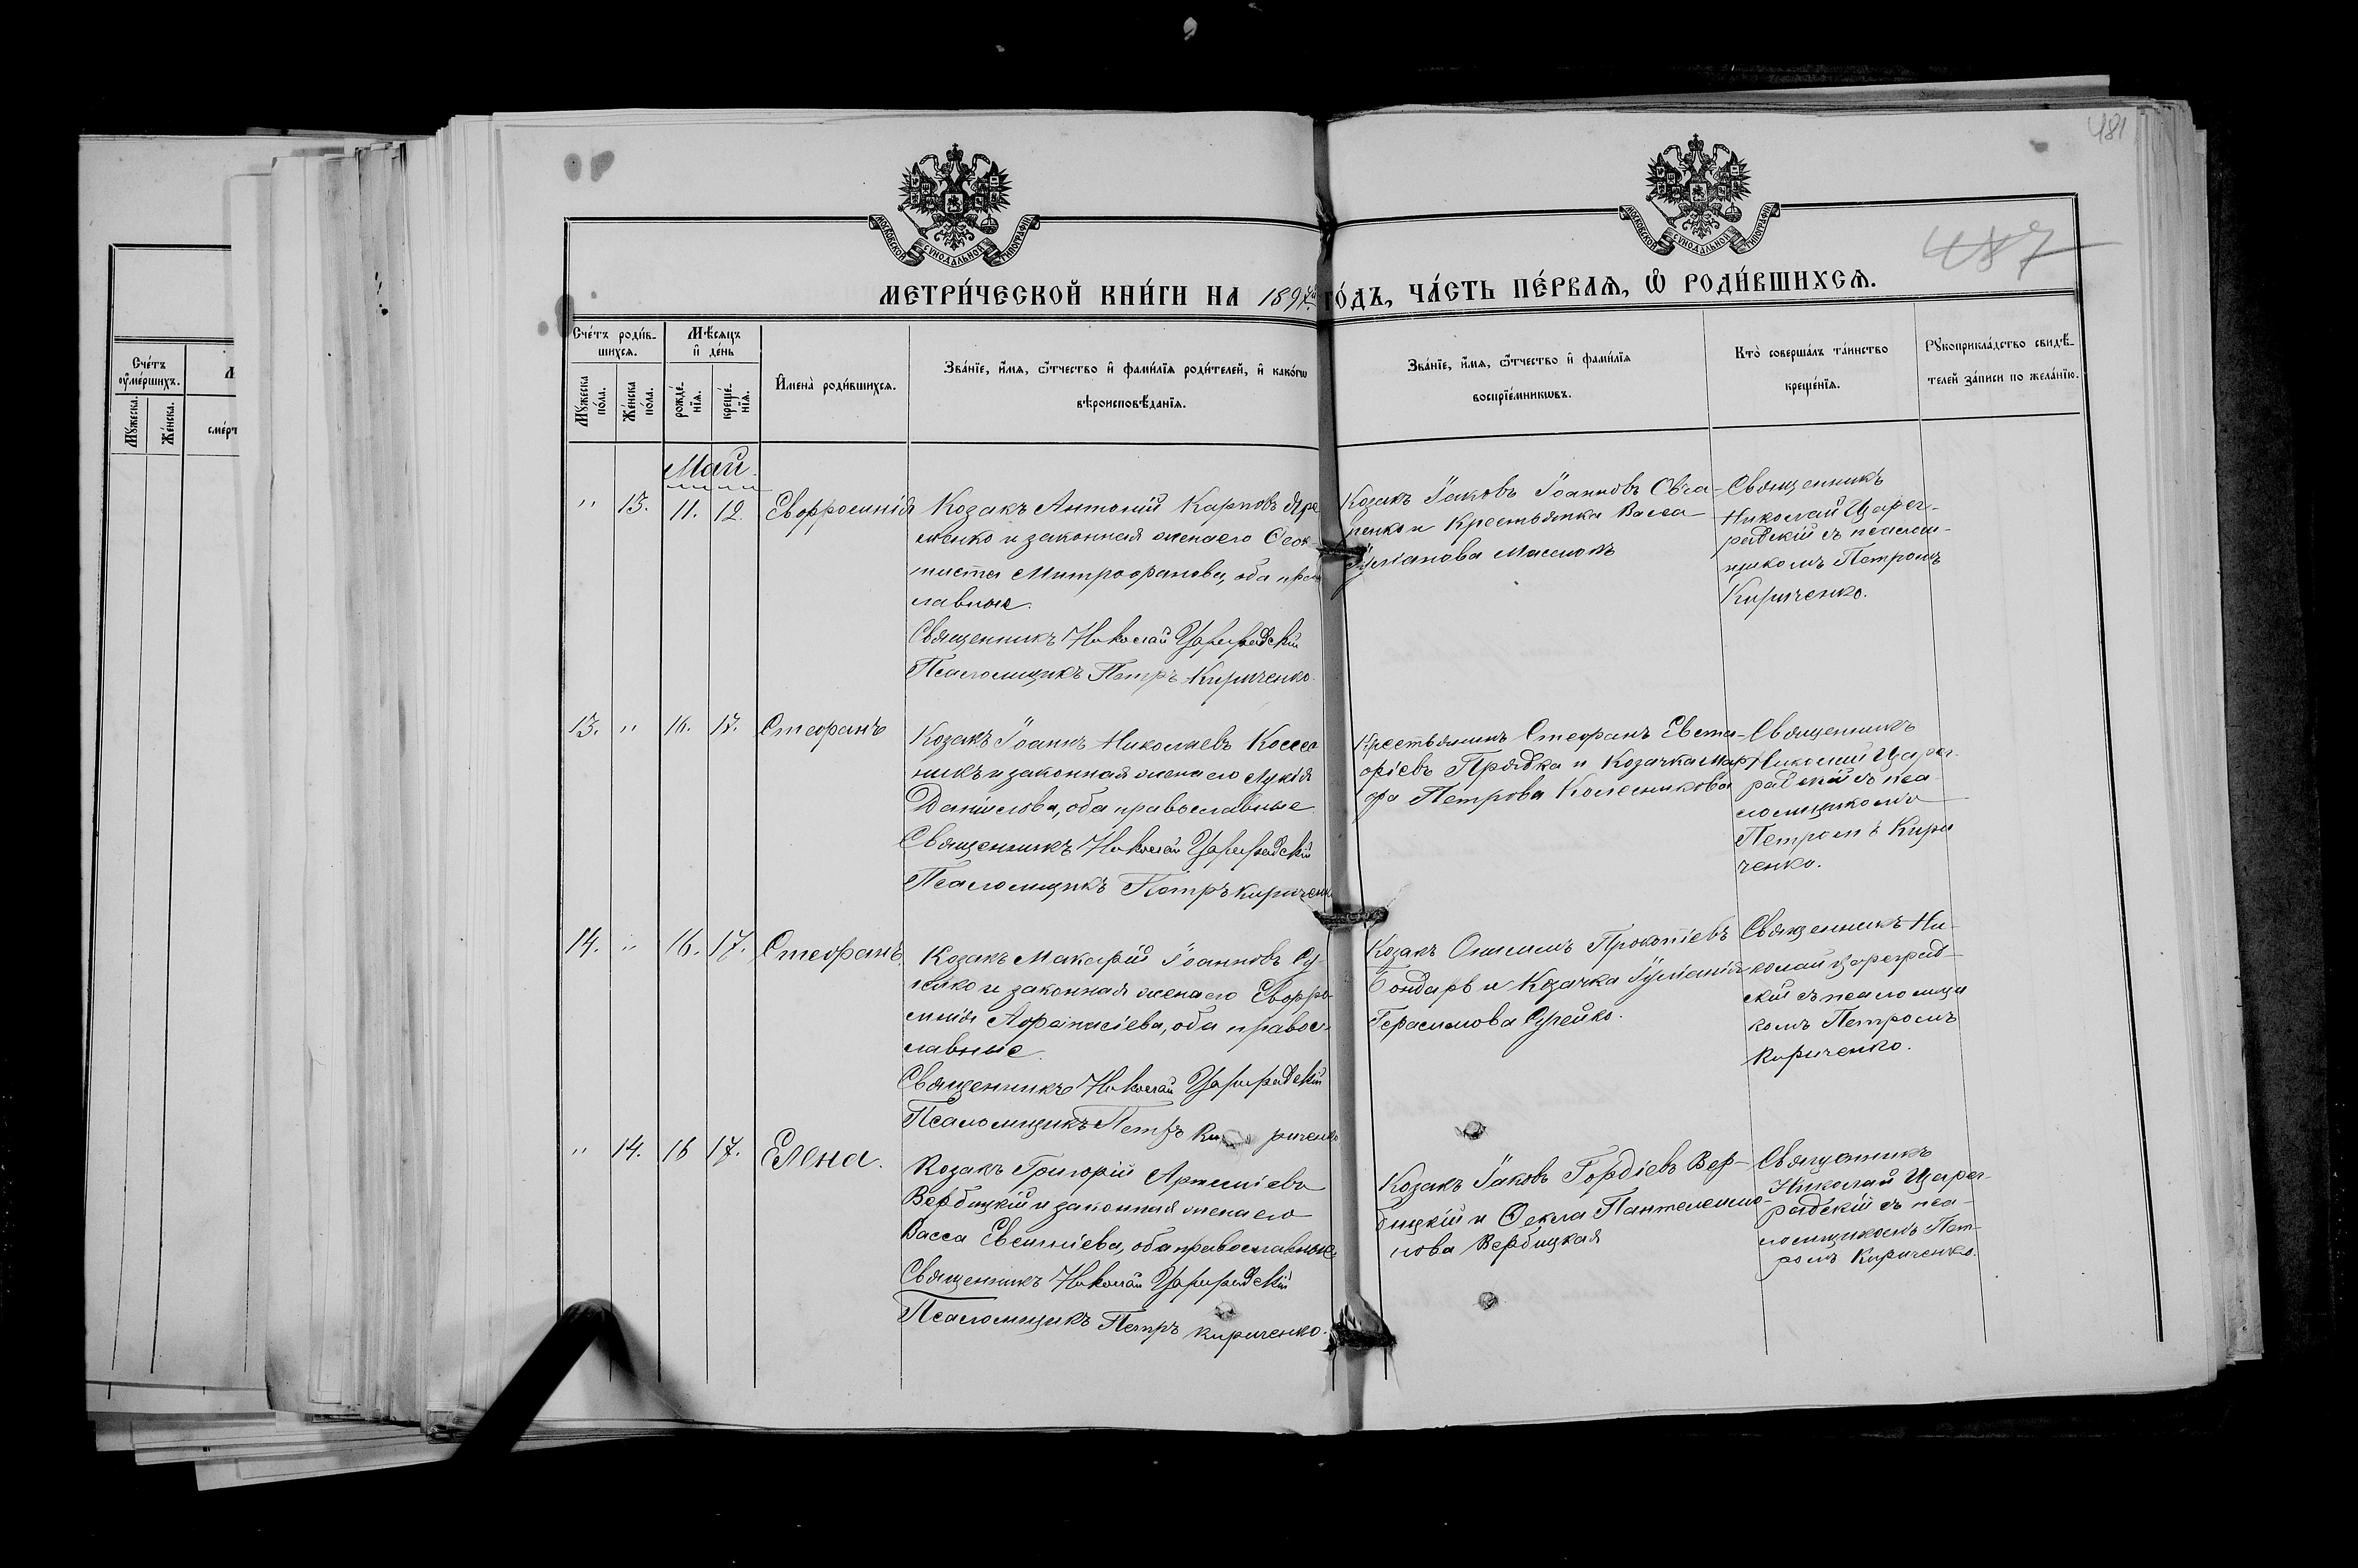 481
487
МОСКОВСКОЙ СУНОДАЛЬНОЙ ТИПОГРАФІИ
МОСКОВСКОЙ СУНОДАЛЬНОЙ ТИПОГРАФІИ
МЕТРИ́ЧЕСКОЙ КНИ́ГИ НА 1897й ГО́ДЪ, ЧА́СТЬ ПЕ́РВАЯ, Ѡ РОДИ́ВШИХСЯ.
Сче́тъ
оуме́ршихъ.
Мꙋжеска.
Же́нска.
сме́рт
Сче́тъ роди́в-
шихся.
Мꙋжеска по́ла.
Же́нска по́ла.
Мѣ́сяцъ
и҆ де́нь
рожде́нїя.
креще́нїя.
И҆мена̀ роди́вшихся.
Зва́нїе, и҆́мя, ѻ҆́тчество и҆ фами́лїя роди́телей, и҆ како́гѡ
вѣроисповѣ́данїя.
Зва́нїе, и҆́мя, ѻ҆́тчество и҆ фами́лїя
воспрїе́мникѡвъ.
Кто̀ соверша́лъ та́инство
креще́нїя.
Рꙋкоприкла́дство свидѣ́-
телей за́писи по жела́нїю.
Май.
" 13. 11. 12. Евфросинія
Козакъ Антоній Карповъ Яре
менко и законная жена его Ѳеок-
тиста Митрофанова, оба право
славные.
Священникъ Николай Цареградскій
Псаломщикъ Петръ Кириченко.
Козакъ Іаковъ Іоанновъ Овча-
ренко и Крестьянка Васса
Іуліанова Маслюкъ
Священникъ
Николай Царег-
радскій съ псалом-
щикомъ Петромъ
Кириченко.
13. " 16. 17. Стефанъ
Козакъ Іоаннъ Николаевъ Колес
никъ и законная жена его Лукія
Даніилова, оба православные
Священникъ Николай Цареградскій
Псаломщикъ Петръ Кириченк
Крестьянинъ Стефанъ Евста-
фіевъ Прядка и Козачка Мар
фа Петрова Колесникова
Священникъ
Николай Царег-
радскій съ пса-
ломщикомъ
Петромъ Кири
ченко.
14. " 16. 17. Стефанъ.
Козакъ Макарій Іоанновъ
и законная жена его Евфро
синія Аѳанасіева, оба правос-
лавные
Священникъ Николай Цареградскій
Псаломщикъ Петръ Ки риченко
Козакъ Онисимъ Прокопіевъ
Бондарь и Козачка Іуліанія
Герасимова
Священникъ Ни-
колай Цареград-
скій съ псаломщи
комъ Петромъ
Кириченко.
" 14. 16 17. Елена.
Козакъ Григорій Артеміевъ
Вербицкій и законная жена его
Васса Евсигніева, оба православные
Священникъ Николай Цареградскій
Псаломщикъ Петръ Кириченко.
Козакъ Іаковъ Гордіевъ Вер-
бицкій и Ѳекла Пантелеимо-
нова Вербицкая
Священникъ
Николай Царег-
радскій съ пса-
ломщикомъ Пет-
ромъ Кириченко.